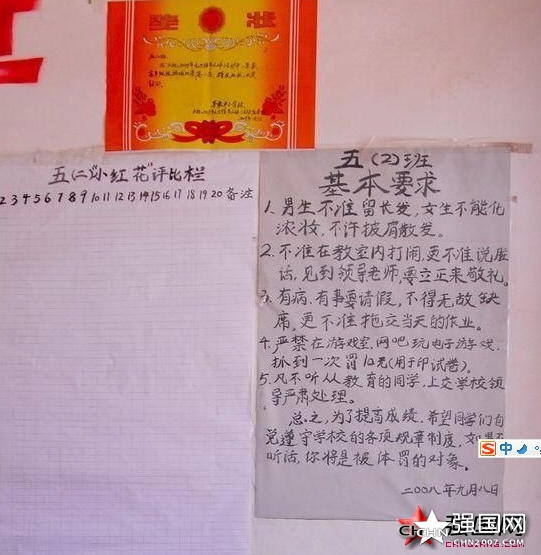 奖状
五(二)"小红花"评比栏
2 3 4 5 6 7 8 9 10 11 12 13 14 15 16 17 18 19 20 备注
五(2)班
基本要求
1. 男生不准留长发,女生不能化
浓妆,不许披肩散发。
2. 不准在教室内打闹,更不准说脏
话,见到领导老师,要立正来敬礼。
3. 有病、有事要请假,不得无故缺
席,更不准拖交当天的作业。
4. 严禁在游戏室、网吧玩电子游戏,
抓到一次罚10元(用于印试卷)。
5. 凡不听从教育的同学,上交学校领
导严肃处理。
总之,为了提高成绩,希望同学们自
觉遵守学校的各项规章制度,
听话,你将是被体罚的对象。
二00八年九月八日
S中
强国网
CHN2007.COM